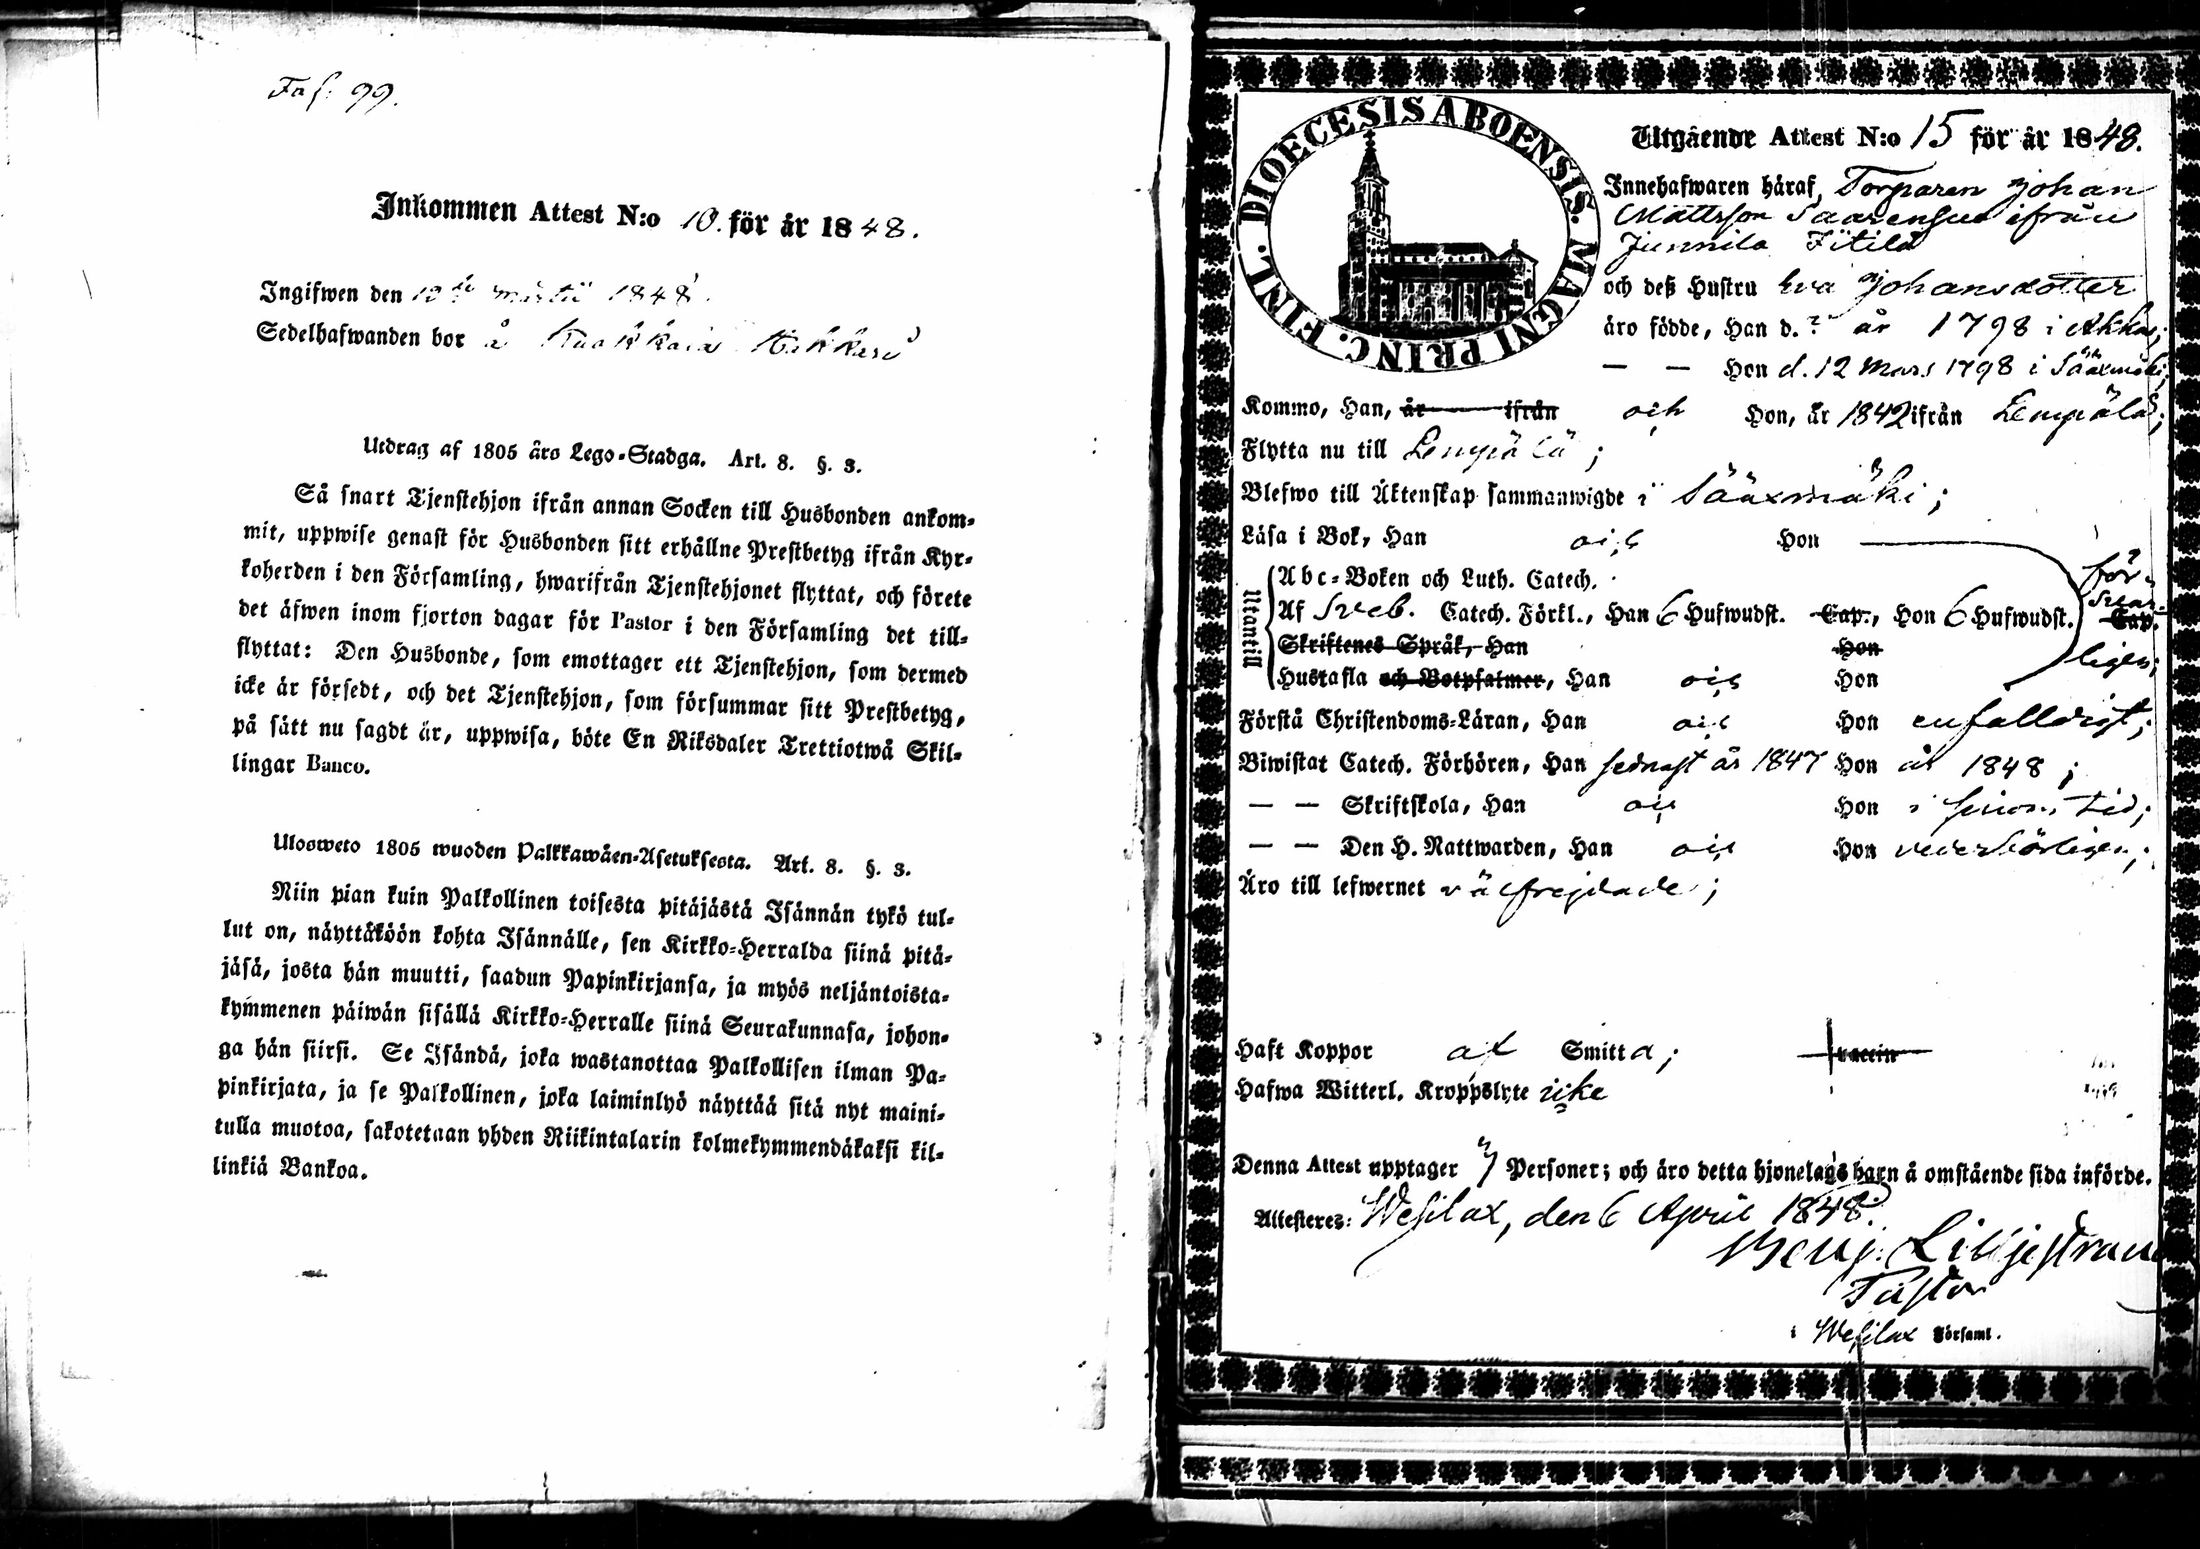 Fol. 99.
Inkommen Attest N:o 10. för år 1848.
Ingifwen den 18de Martii 1848.
Sedelhafwanden bor å
Utdrag af 1805 års Lego-Stadga. Art. 8. §. 3.
Så snart Tjenstehjon ifrån annan Socken till Husbonden ankom-
mit, uppwise genast för Husbonden sitt erhållne Prestbetyg ifrån Kyr-
koherden i den Församling, hwarifrån Tjenstehjonet flyttat, och förete
det äfwen inom fjorton dagar för Pastor i den Församling det till-
flyttat: Den Husbonde, som emottager ett Tjenstehjon, som dermed
icke är försedt, och det Tjenstehjon, som försummar sitt Prestbetyg,
på sätt nu sagdt är, uppwisa, böte En Riksdaler Trettiotwå Skil-
lingar Banco.
Ulosweto 1805 wuoden Palkkawäen-Asetuksesta. Art. 8. §. 3.
Niin pian kuin Palkollinen toisesta pitäjästä Isännän tykö tul-
lut on, näyttäköön kohta Isännälle, sen Kirkko-Herralda siinä pitä-
jäsä, josta hän muutti, saadun Papinkirjansa, ja myös neljäntoista-
kymmenen päiwän sisällä Kirkko-Herralle siinä Seurakunnasa, johon-
ga hän siirsi. Se Isändä, joka wastanottaa Palkollisen ilman Pa-
pinkirjata, ja se Palkollinen, joka laiminlyö näyttää sitä nyt maini-
tulla muotoa, sakotetaan yhden Riikintalarin kolmekymmendäkaksi kil-
linkiä Bankoa.
DIOECESIS ABOENSIS. MAGNI PRINC. FINL.
Utgående Attest N:o 15 för år 1848.
Innehafwaren häraf, Torparen Johan
Mattsson Saarensuu ifrån
Junnila Sitilä
och deß Hustru Eva Johansdotter
äro födde, Han d. ? år 1798 i Akkas;
— — Hon d. 12 Mars 1798 i Sääxmäki;
Kommo, Han, år ifrån och Hon, år 1842 ifrån Lempälä;
Flytta nu till Lempälä;
Blefwo till Äktenskap sammanwigde i Sääxmäki;
Läsa i Bok, Han och Hon
Utantill
Abc-Boken och Luth. Catech.
Af Sveb. Catech. Förkl., Han 6 Hufwudst. Cap., Hon 6 Hufwudst. Cap.
Skriftenes Språk, Han Hon
Hustafla och Botpsalmer, Han och Hon
för-
svar-
ligen;
Förstå Christendoms-Läran, Han och Hon enfalldigt;
Biwistat Catech. Förhören, Han sednast år 1847 Hon år 1848;
— — Skriftskola, Han och Hon i sinom tid;
— — Den H. Nattwarden, Han och Hon vederbörligen;
Äro till lefwernet välfrejdade;
Haft Koppor af Smitta; vaccin
Hafwa Witterl. Kroppslyte icke
Denna Attest upptager 7 Personer; och äro detta hjonelags barn å omstående sida införde.
Attesteres: Wesilax, den 6 April 1848.
Benj. Liljestrand
Pastor
i Wesilax Församl.